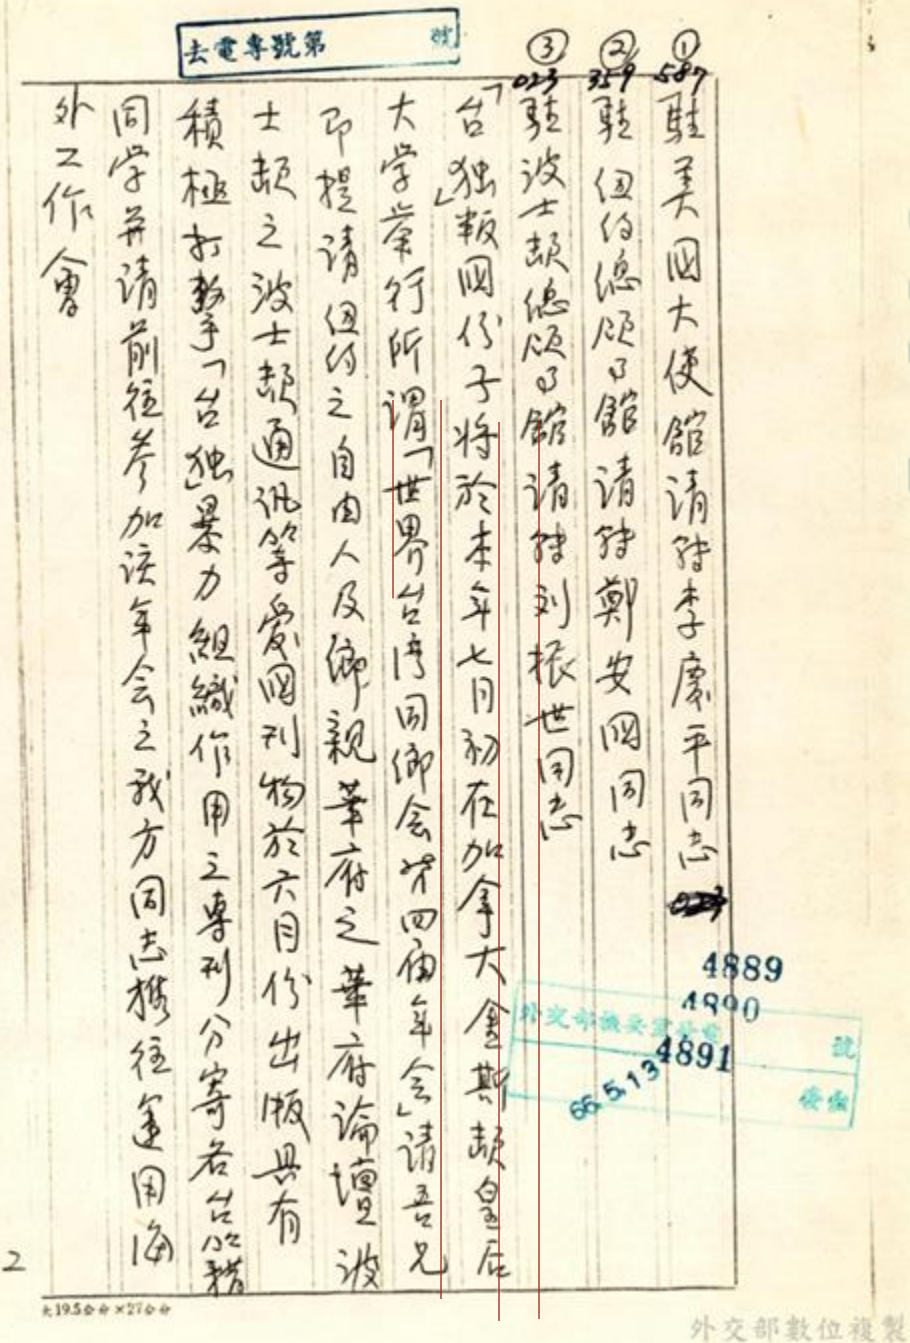 去電專號第 號
①
587
駐美國大使館請轉李慶平同志
②
359
駐紐約總領事館請轉鄭安國同志
③
023
駐波士頓總領事館請轉刘振世同志
「台独」叛國份子将於本年七月初在加拿大金斯頓皇后
大学举行所謂「世界台湾同鄉会第四屆年会」請吾兄
即提請紐約之自由人及鄉親華府之華府論壇波
士頓之波士頓通讯等愛國刊物於六月份出版具有
積極打擊「台独」暴力組織作用之專刊分寄各台籍
同学并請前往参加该年会之我方同志携往運用海
外工作會
4889
4890
4891
外交部機要室發電 號
66.5.13
2
19.5公分×27公分
外交部數位複製